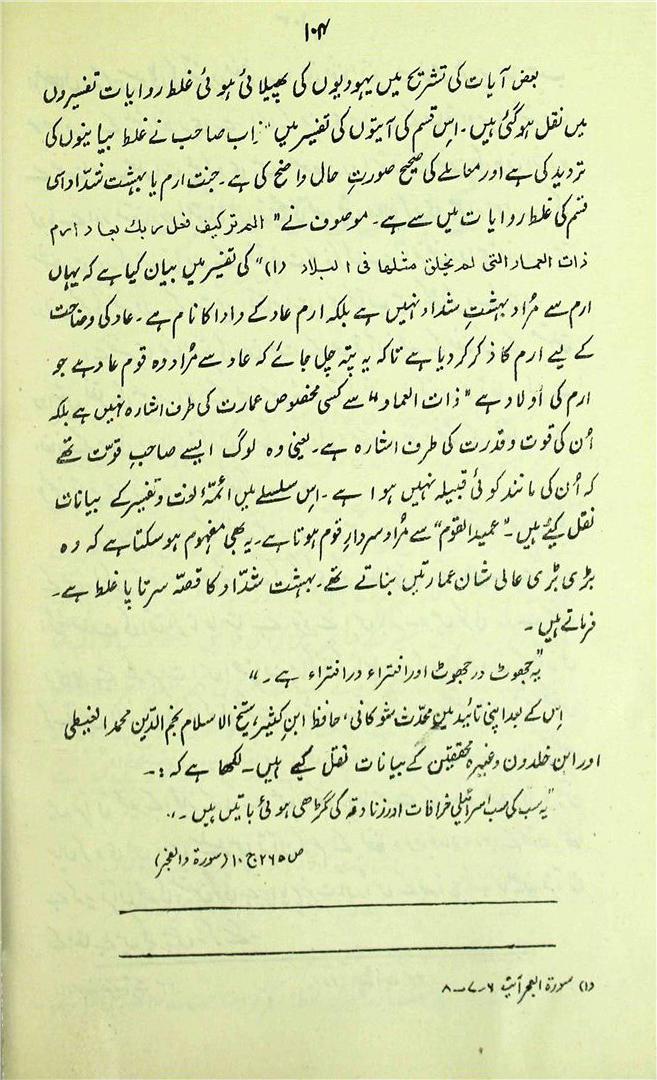 ۱۰۴
بعض آیات کی تشریح میں یہودیوں کی پھیلائی ہوئی غلط روایات تفسیروں
میں نقل ہوگئی ہیں۔ اس قسم کی آیتوں کی تفسیر میں نواب صاحب نے غلط بیانیوں کی
تردید کی ہے اور معاملے کی صحیح صورتِ حال واضح کی ہے۔ جنت ارم یا بہشت شدّاد اسی
قسم کی غلط روایات میں سے ہے۔ موصوف نے "الم تر کیف فعل ربك بعاد ارم
ذات العماد التی لم یخلق مثلها فی البلاد (۱)" کی تفسیر میں بیان کیا ہے کہ یہاں
ارم سے مُراد بہشتِ شداد نہیں ہے بلکہ ارم عاد کے دادا کا نام ہے۔ عاد کی وضاحت
کے لیے ارم کا ذکر کر دیا ہے تاکہ یہ پتہ چل جائے کہ عاد سے مُراد وہ قوم عاد ہے جو
ارم کی اولاد ہے "ذات العماد" سے کسی مخصوص عمارت کی طرف اشارہ نہیں ہے بلکہ
اُن کی قوت و قدرت کی طرف اشارہ ہے۔ یعنی وہ لوگ ایسے صاحبِ قوّت تھے
کہ اُن کی مانند کوئی قبیلہ نہیں ہوا ہے۔ اس سلسلے میں ائمّۂ لغت و تفسیر کے بیانات
نقل کیئے ہیں۔ "عمید القوم" سے مُراد سردارِ قوم ہوتا ہے۔ یہ بھی مفہوم ہوسکتا ہے کہ وہ
بڑی بڑی عالی شان عمارتیں بناتے تھے۔ بہشت شدّاد کا قصّہ سرتا پا غلط ہے۔
فرماتے ہیں۔
"یہ جھوٹ در جھوٹ اور افتراء در افتراء ہے۔"
اس کے بعد اپنی تائید میں محدّث شوکانی، حافظ ابن کثیر، شیخ الاسلام نجم الدین محمد الغیطی
اور ابن خلدون وغیرہ محققین کے بیانات نقل کیے ہیں۔ لکھا ہے کہ :۔
"یہ سب کی سب اسرائیلی خرافات اور زنادقہ کی گھڑھی ہوئی باتیں ہیں۔"
ص ۲۶۵ ج ۱۰ (سورة والفجر)
(۱) سورة الفجر آیت ۶-۷-۸